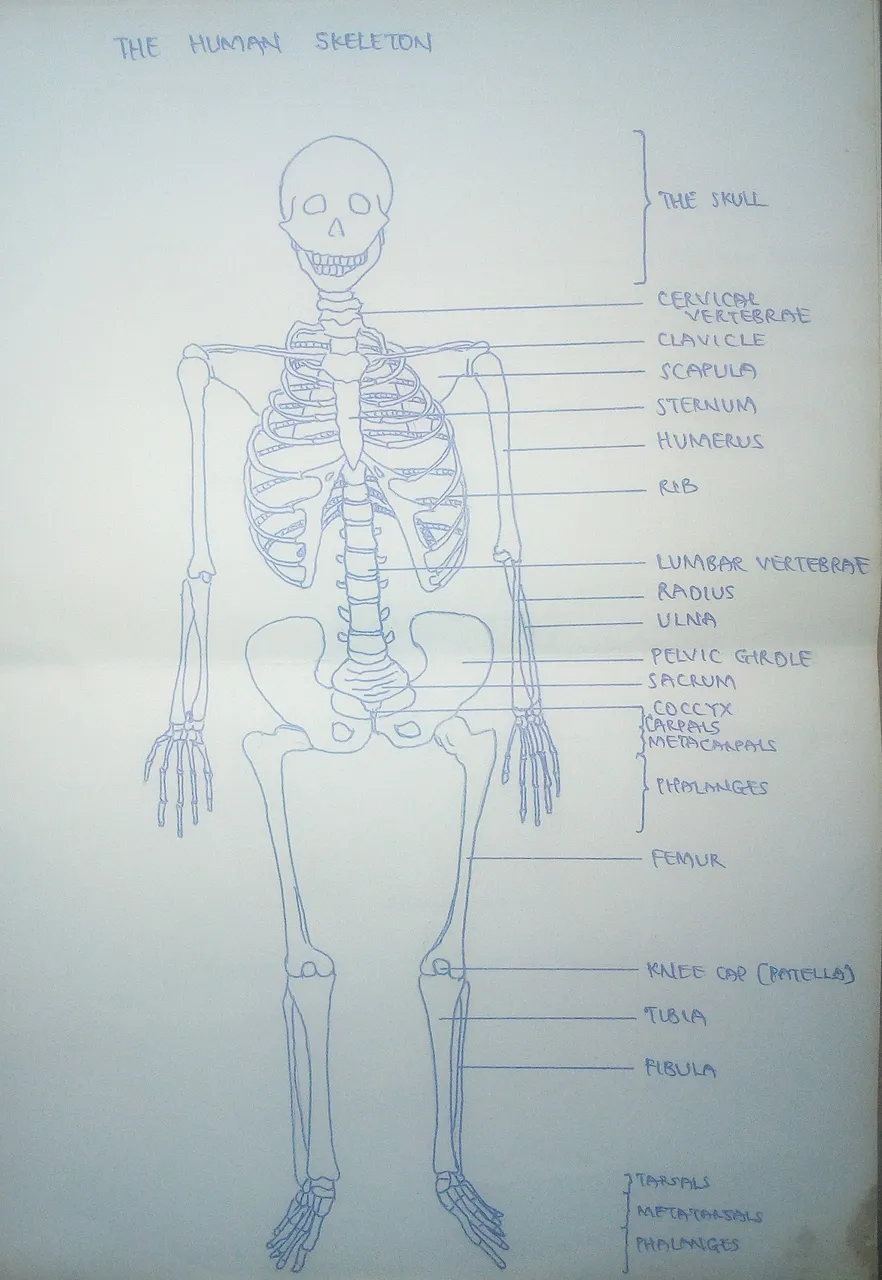 THE HUMAN SKELETON
THE SKULL
CERVICAL
VERTEBRAE
CLAVICLE
SCAPULA
STERNUM
HUMERUS
RIB
LUMBAR VERTEBRAE
RADIUS
ULNA
PELVIC GIRDLE
SACRUM
COCCYX
CARPALS
METACARPALS
PHALANGES
FEMUR
KNEE CAP (PATELLA)
TIBIA
FIBULA
TARSALS
METATARSALS
PHALANGES